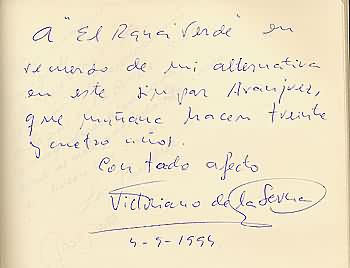 A "El Rana Verde" en
recuerdo de mi alternativa
en este sin par Aranjuez,
que mañana hacen treinta
y cuatro años.
Con todo afecto
Victoriano de la Serna
4-9-1994